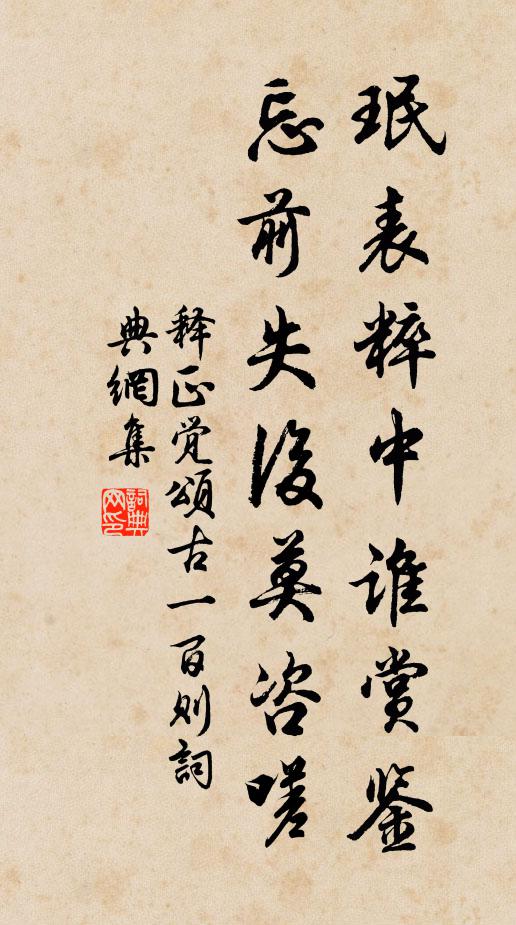 珉表粹中谁赏鉴
忘前失后莫咨嗟
释正觉颂古一百则词
典网集
词典网印